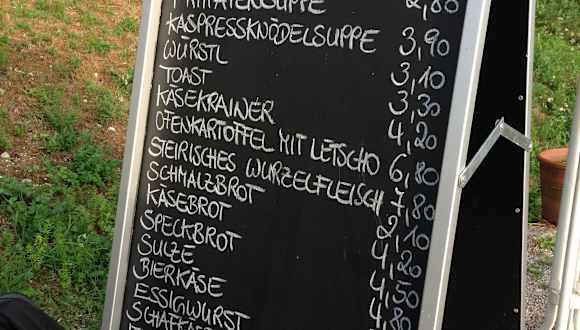 FRITTATENSUPPE 2,80
KASPRESSKNÖDELSUPPE 3,90
WÜRSTL 3,10
TOAST 3,30
KÄSEKRAINER 4,20
OFENKARTOFFEL MIT LETSCHO 6,80
STEIRISCHES WURZELFLEISCH 7,80
SCHMALZBROT 2,10
KÄSEBROT 4,20
SPECKBROT 4,50
SULZE 4,80
BIERKÄSE
ESSIGWURST